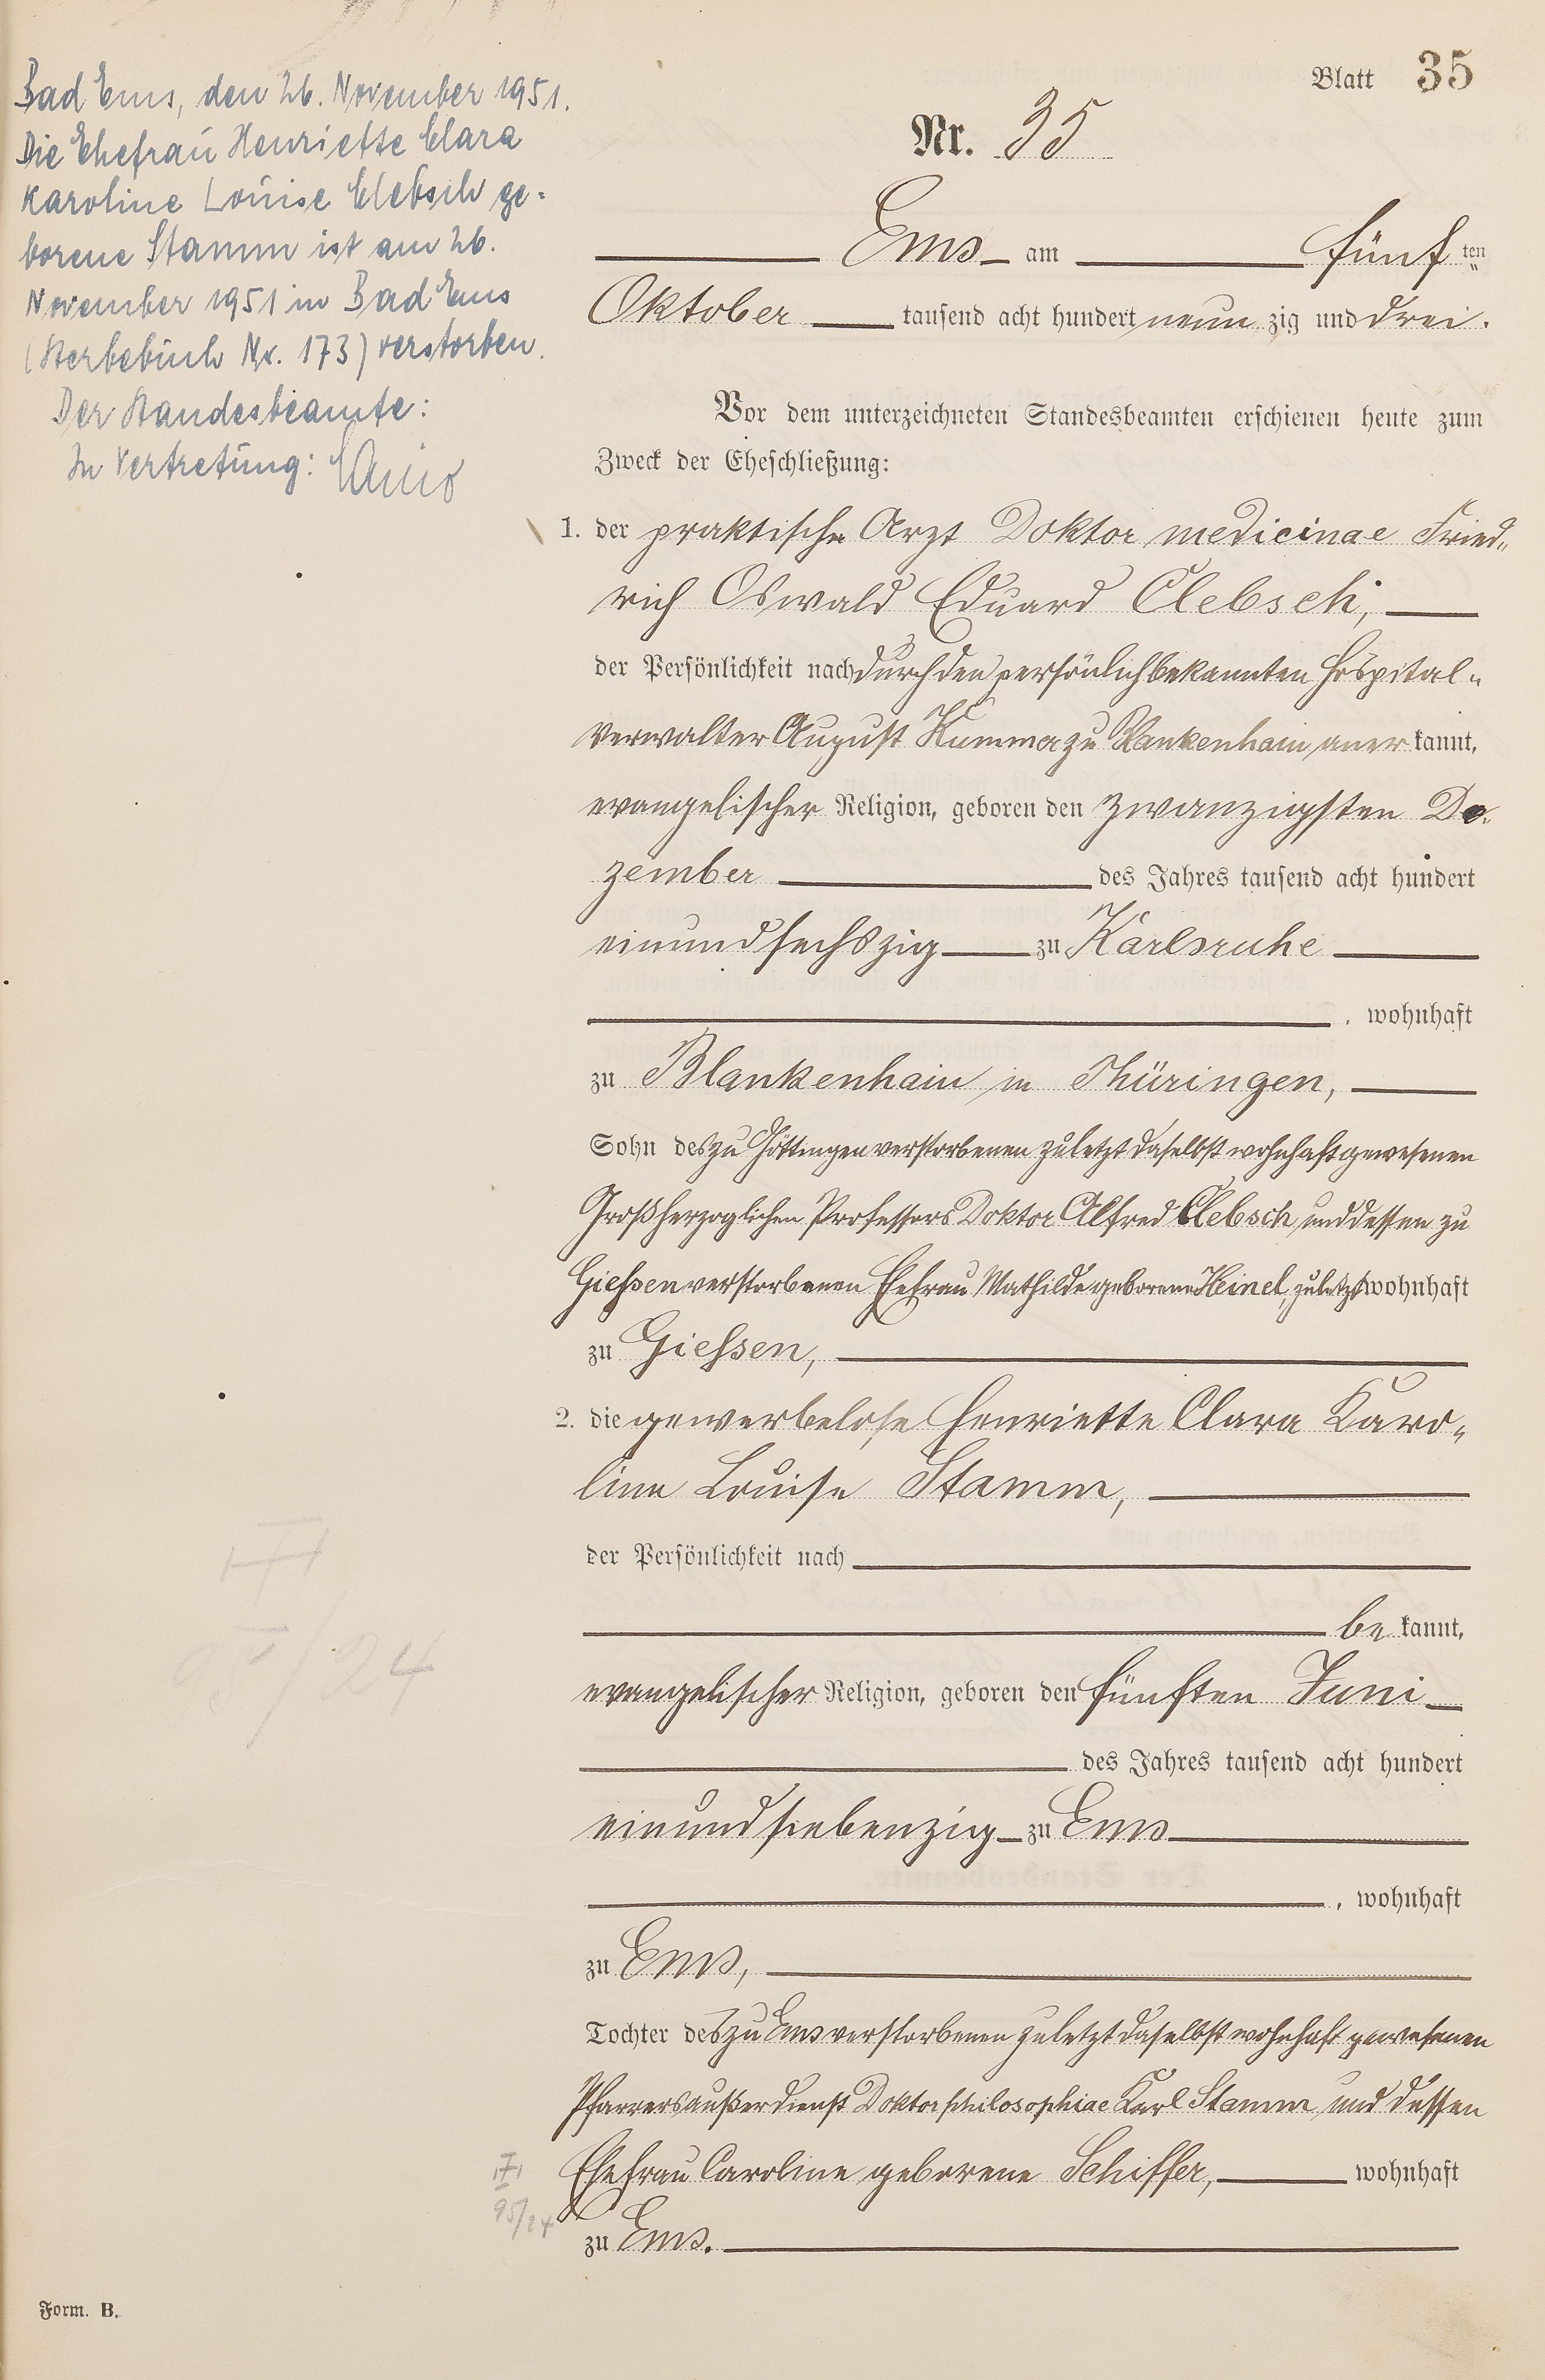 Blatt 35
Nr. 35
Bad Ems, den 26. November 1951.
Die Ehefrau Henriette Clara
Karoline Louise Clebsch ge-
borene Stamm ist am 26.
November 1951 in Bad Ems
(Sterbebuch Nr. 173) verstorben.
Der Standesbeamte:
In Vertretung:
Ems am fünften
Oktober tausend acht hundert neunzig und drei.
Vor dem unterzeichneten Standesbeamten erschienen heute zum
Zweck der Eheschließung:
1. der praktische Arzt Doktor medicinae Fried-
rich Oswald Eduard Clebsch,
der Persönlichkeit nach durch den persönlich bekannten Hospital-
verwalter August Kummer zu Blankenhain anerkannt,
evangelischer Religion, geboren den zwanzigsten De-
zember des Jahres tausend acht hundert
einundsechszig zu Karlsruhe
, wohnhaft
zu Blankenhain in Thüringen,
Sohn des zu Göttingen verstorbenen zuletzt daselbst wohnhaft gewesenen
Großherzoglichen Professors Doktor Alfred Clebsch und dessen zu
Giessen verstorbenen Ehefrau Mathilde geborene Heinel, zuletzt wohnhaft
zu Giessen,
2. die gewerbelose Henriette Clara Karo-
line Louise Stamm,
der Persönlichkeit nach
bekannt,
evangelischer Religion, geboren den fünften Juni
des Jahres tausend acht hundert
einundsiebenzig zu Ems
, wohnhaft
zu Ems,
Tochter des zu Ems verstorbenen zuletzt daselbst wohnhaft gewesenen
Pfarrers außer Dienst Doktor philosophiae Karl Stamm und dessen
Ehefrau Caroline geborene Schiffer, wohnhaft
95/24
zu Ems.
Form. B.